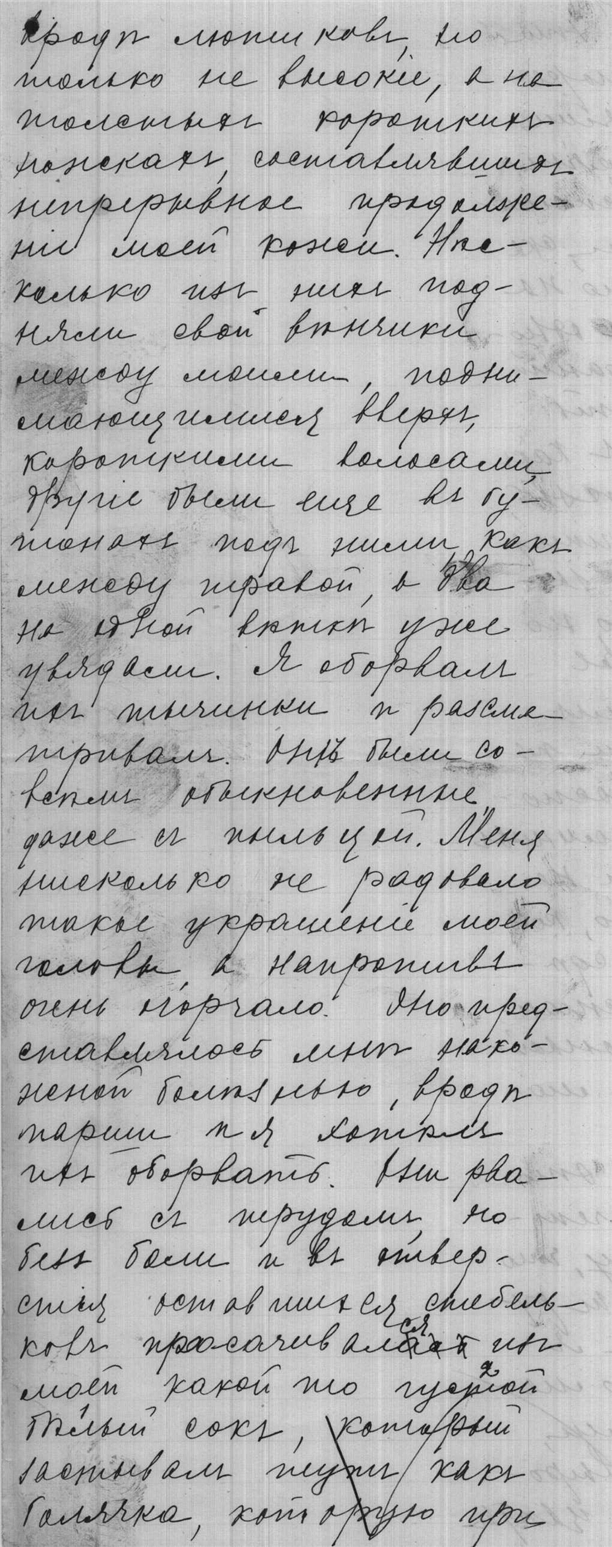 вродѣ лютиковъ, но
только не высокіе, а на
толстыхъ короткихъ
ножкахъ, составлявшихъ
непрерывное продолже-
ніе моей кожи. Нѣс-
колько изъ нихъ под-
няли свои вѣнчики
между моими, подни-
мающимися вверхъ,
короткими волосами,
другіе были еще въ бу-
тонахъ подъ ними, какъ
между травой, а два
на одной вѣткѣ уже
увядали. Я оборвалъ
ихъ тычинки и разсма-
тривалъ. Онѣ были со-
всѣмъ обыкновенные,
даже съ пыльцой. Меня
нисколько не радовало
такое украшеніе моей
головы, а напротивъ
очень огорчало. Оно пред-
ставлялось мнѣ нако-
жной болѣзнью, вродѣ
парши и я хотѣлъ
ихъ оборвать. Они рва-
лись съ трудомъ, но
безъ боли и въ отвер-
стія оставшихся стебель-
ковъ просачивался изъ
моей какой то густой
бѣлый сокъ, который
застывалъ тутъ какъ
болячка, которую при